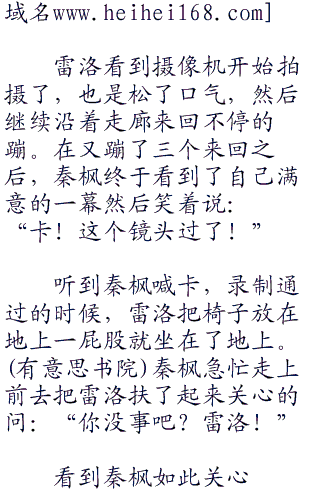 域名www.heihei168.com]
雷洛看到摄像机开始拍
摄了，也是松了口气，然后
继续沿着走廊来回不停的
蹦。在又蹦了三个来回之
后，秦枫终于看到了自己满
意的一幕然后笑着说：
“卡！这个镜头过了！”
听到秦枫喊卡，录制通
过的时候，雷洛把椅子放在
地上一屁股就坐在了地上。
(有意思书院)秦枫急忙走上
前去把雷洛扶了起来关心的
问：“你没事吧？雷洛！”
看到秦枫如此关心